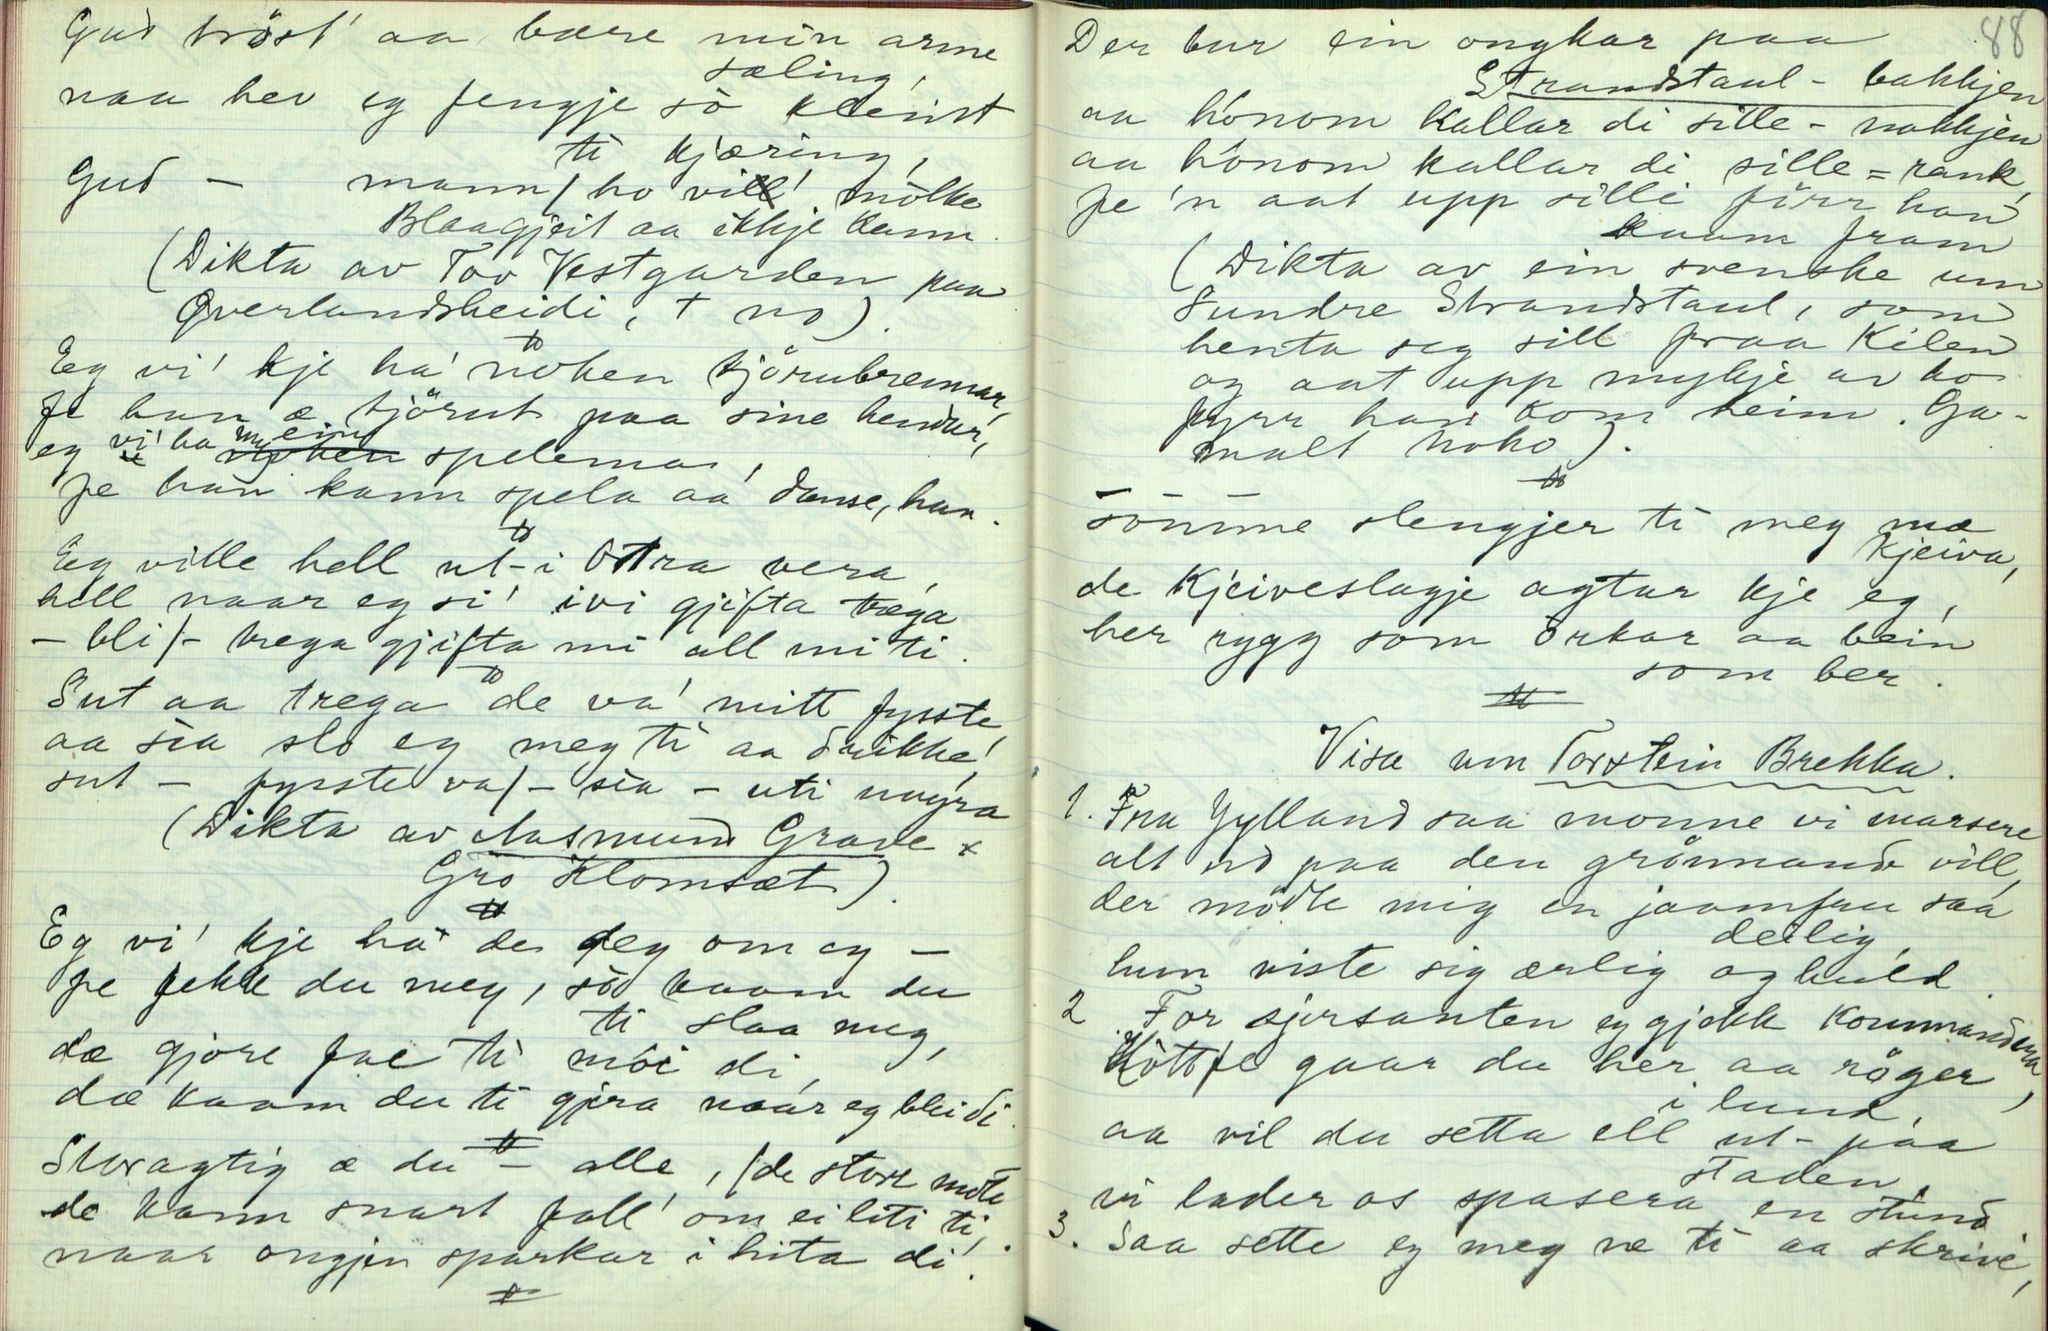 Gud tröst' aa bære min arme
sæling,
naa hev eg fengje sò kleint
ti kjæring,
Gud – mann / ho vill' mólke
Blaagjeit aa ikkje kann.
(Dikta av Tov Vestgarden paa
Qverlandsheidi, † no).
Eg vi' kje ha' nòken tjörubrennar,
fe han æ tjörut paa sine hendar,
eg vi' ha meg ein spelemann,
fe han kann spela aa danse, han.
Eg ville hell ut-i Otra vera,
hell naar eg si' ivi gjifta træga
– bli /– trega gjifta mi all mi ti.
Sut aa trega de va' mitt fysste,
aa sia slo eg meg ti aa drikke,
sut – fysste va /– sia – uti nogra
(Dikta av Aasmund Grave x
Gro Klomsæt).
Eg vi' kje ha de deg om eg –
fe fekk du meg, sò kaam du
ti slaa meg,
dæ gjore fae ti mói di,
dæ kaam du ti gjera naar eg bli di.
Storagtig æ du – alle, / de store mote
de kann snart fall' om ei liti ti,
naar ongjen sparkar i hita di.
88
Der bur ein ongkar paa
Strandstaul-bakkjen
aa hònom kallar di sille-nakkjen
aa hònom kallar di sille=rank,
fe 'n aat upp silli fórr han
kaam fram
(Dikta av ein svenske um
Sundre Strandstaul, som
henta seg sill fraa Kilen
og aat upp mykje av ho
fyrr han kom heim. Ga-
malt noko).
Sómme slengjer ti meg mæ
kjeiva,
de kjeiveslagje agtar kje eg,
her rygg som órkar aa bein
som ber.
Visa um Torstein Brekka.
1. Fra Jylland saa monne vi marsere
alt ud paa den grönnande vill,
der mödte mig en jaamfru saa
deilig,
hun viste sig ærlig og huld.
2 For sjersanten eg gjekk kommandera,
Hòtt fe gaar du her aa röger
i lund,
aa vil du setta ell ut-paa
staden,
vi lader os spasera en stund
3. Saa sette eg meg ne ti aa skrive,